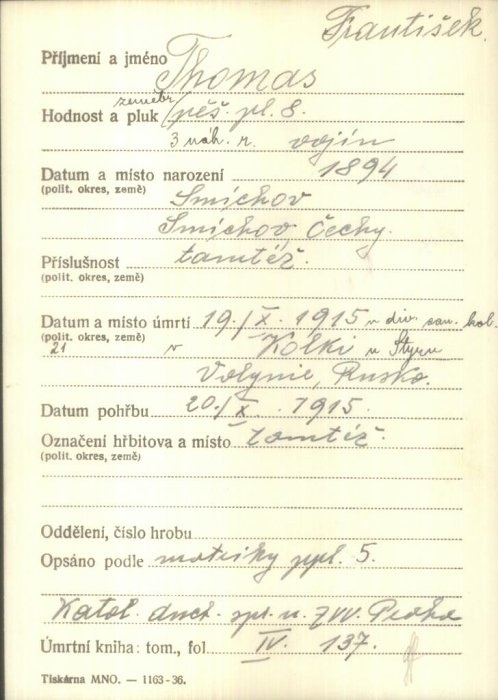 František
Příjmení a jméno Thomas
zeměbr.
Hodnost a pluk pěš. pl. 8.
3 náh. r. vojín
Datum a místo narození 1894
(polit. okres, země) Smíchov
Smíchov Čechy.
Příslušnost tamtéž.
(polit. okres, země)
Datum a místo úmrtí 19./X. 1915 v div. san. kol.
(polit. okres, země)
21 v Kolki u Styru
Volynie, Rusko.
Datum pohřbu 20./X. 1915.
Označení hřbitova a místo tamtéž.
(polit. okres, země)
Oddělení, číslo hrobu
Opsáno podle matriky ppl. 5.
Katol. duch. spr. u ZVV. Praha
Úmrtní kniha: tom., fol. IV. 137.
Tiskárna MNO. — 1163-36.